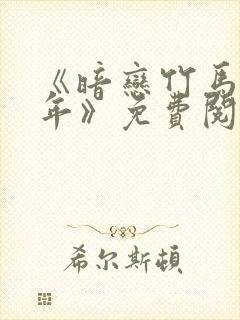 《暗戀竹馬
年》免費閱
希尔斯頓